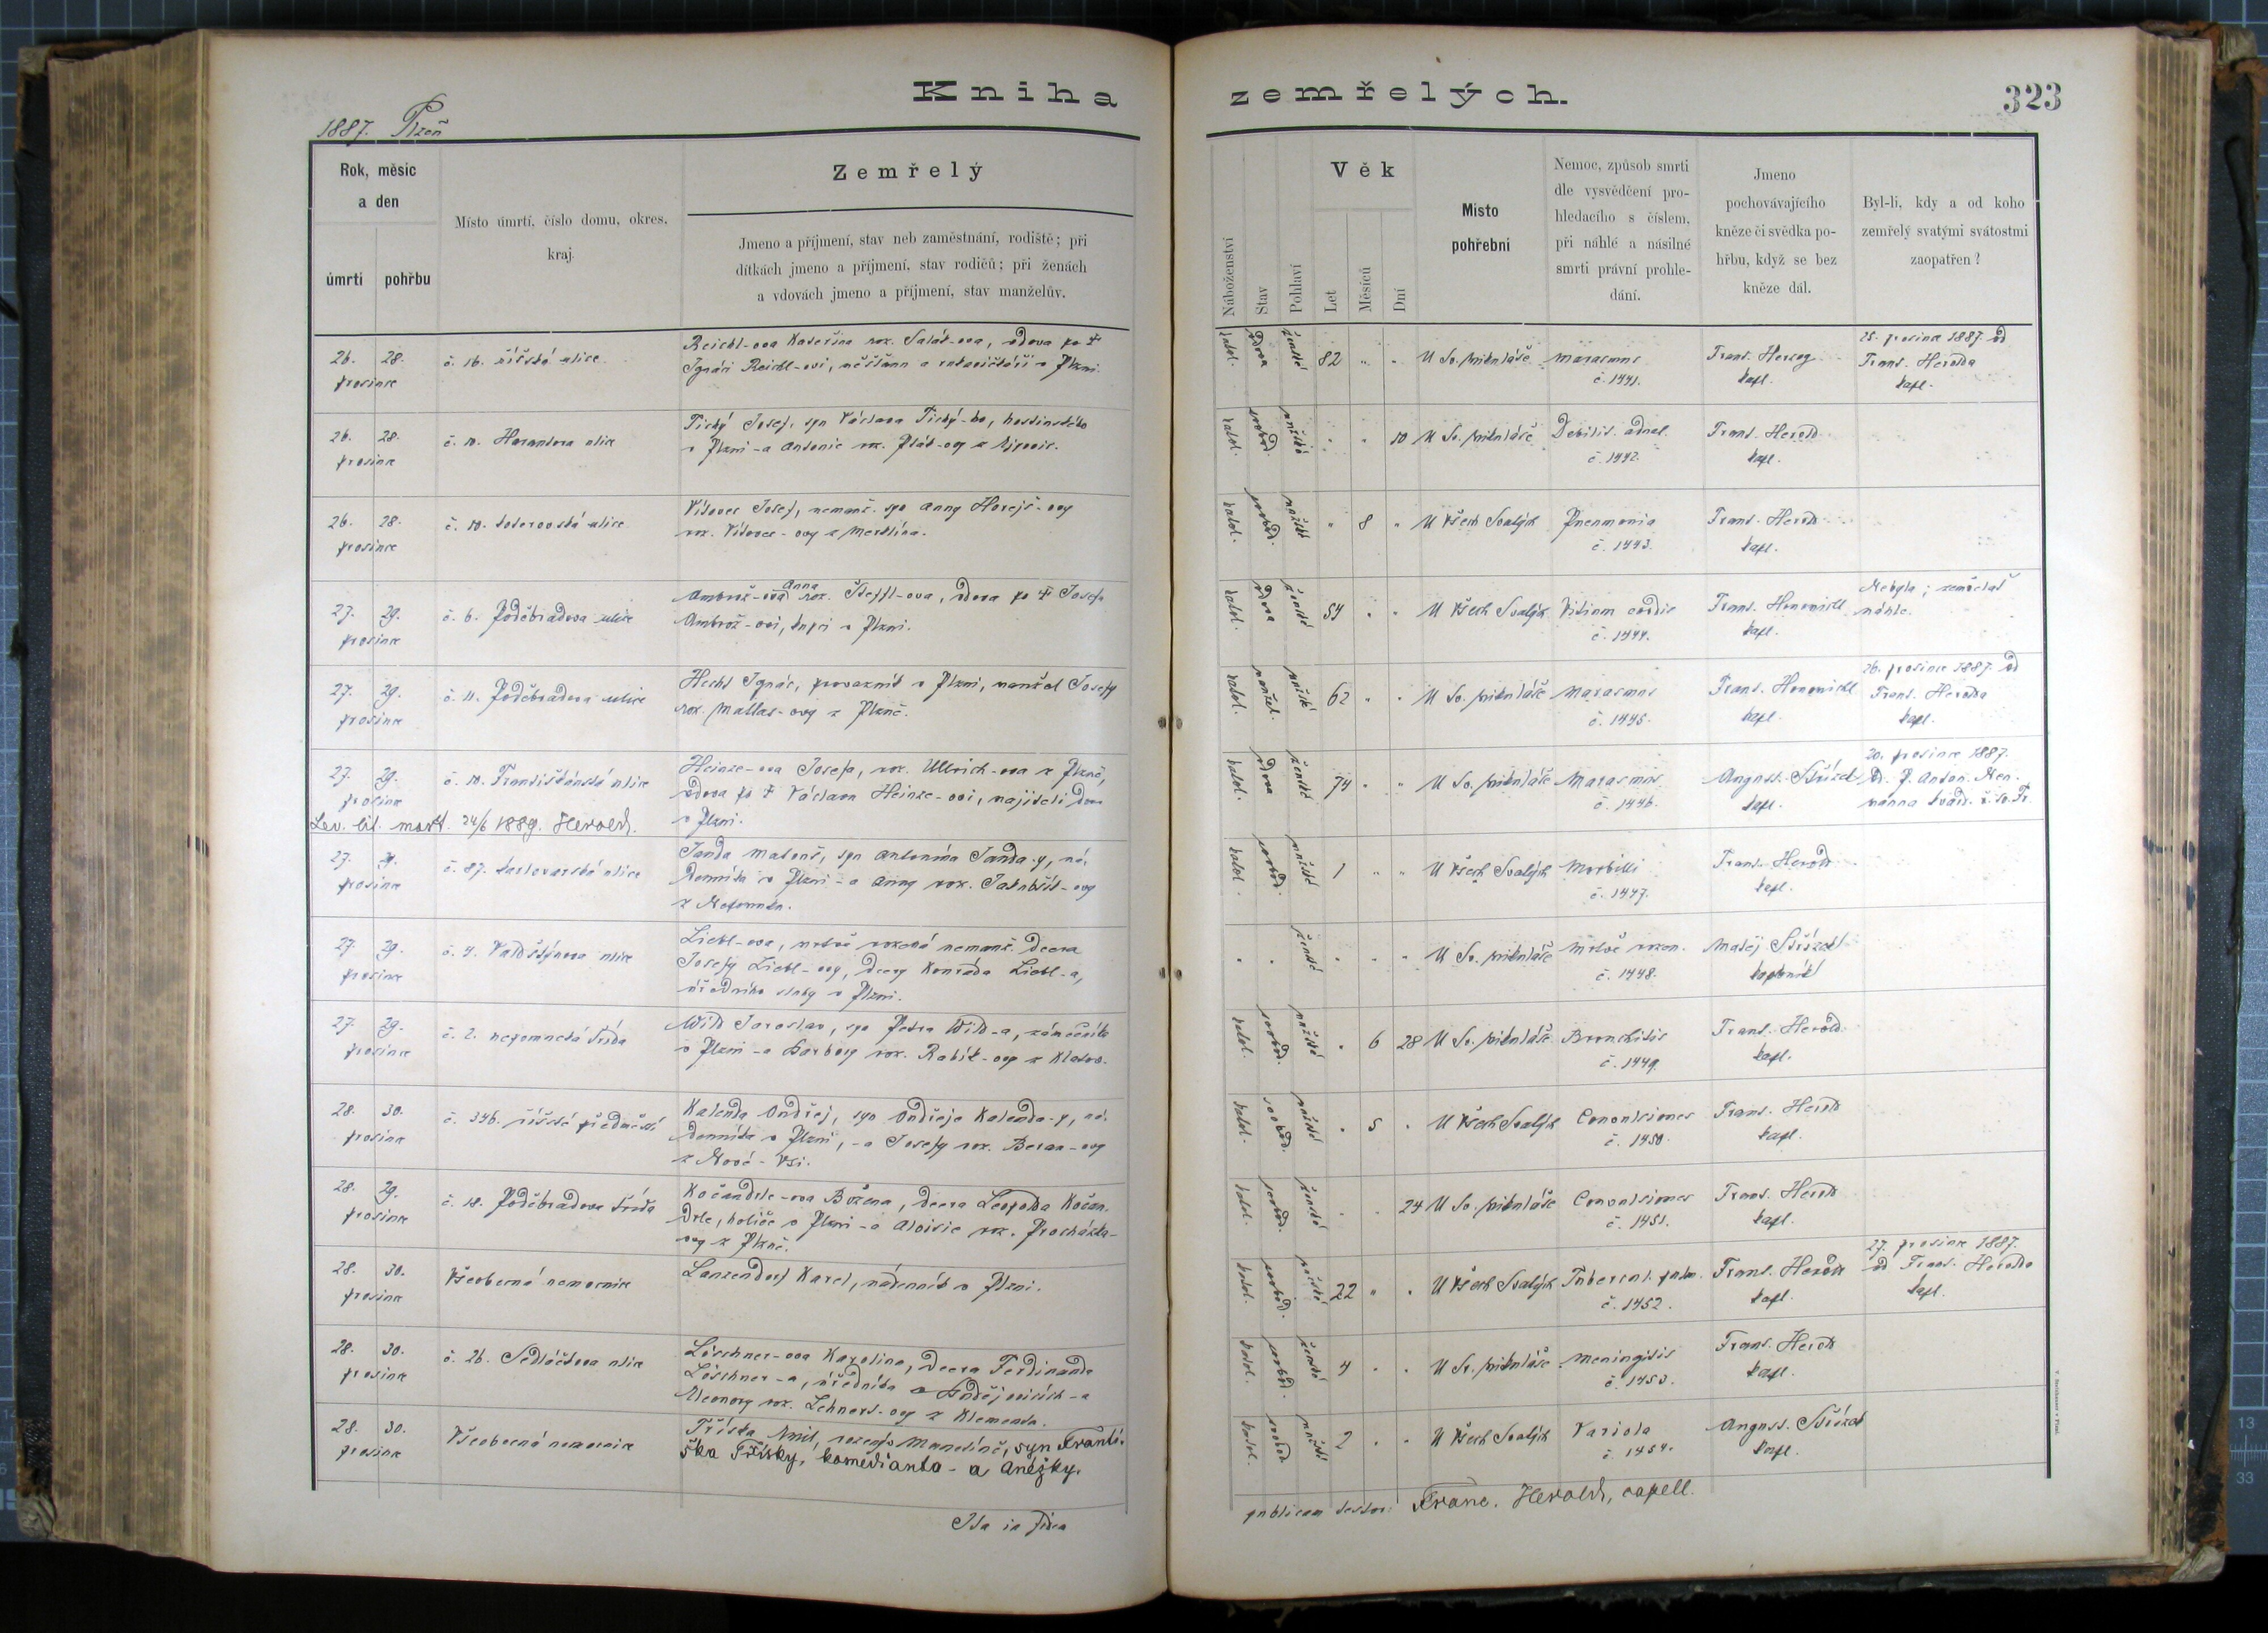 Kniha
zemřelých.
323
1887. Plzeň
Rok, měsíc
a den
úmrtí
pohřbu
Místo úmrtí, číslo domu, okres,
kraj.
Zemřelý
Jmeno a příjmení, stav neb zaměstnání, rodiště; při
dítkách jmeno a příjmení, stav rodičů; při ženách
a vdovách jmeno a příjmení, stav manželův.
Náboženství
Stav
Pohlaví
Věk
Let
Měsíců
Dní
Místo
pohřební
Nemoc, způsob smrti
dle vysvědčení pro-
hledacího s číslem,
při náhlé a násilné
smrti právní prohle-
dání.
Jmeno
pochovávajícího
kněze či svědka po-
hřbu, když se bez
kněze dál.
Byl-li, kdy a od koho
zemřelý svatými svátostmi
zaopatřen?
26. 28.
prosince
č. 16. říšská ulice
Reichl-ova Kateřina roz. Salát-ova, vdova po †
Ignáci Reichl-ovi, měšťanu a rukavičkáři v Plzni.
katol. vdova ženské 82 " " U Sv. Mikuláše
marasmus
č. 1441.
Frant. Herzog
kapl.
25. prosince 1887 od
Frant. Herolda
kapl.
26. 28.
prosince
č. 10. Harantova ulice
Tichý Josef, syn Václava Tichý-ho, hostinského
v Plzni - a Antonie roz.
katol. svobod. mužské 10 U Sv. Mikuláše
Debilit. adnat.
č. 1442.
Frant. Herold
kapl.
26. 28.
prosince
č. 10. ulice
Vítovec Josef, nemanž. syn Anny Horejš-ovy
roz. Vítovec-ovy z Merklína.
katol. svobod. mužské " 8 " U Všech Svatých
Pneumonia
č. 1443.
Frant. Herold
kapl.
27. 29.
prosince
č. 6. Poděbradova ulice
Anna
Ambrož-ova roz. Šteffl-ova, vdova po † Josefu
Ambrož-ovi, kupci v Plzni.
katol. vdova ženské 54 U Všech Svatých
Vitium cordis
č. 1444.
Frant. Honomichl
kapl.
Nebyla; zemřelať
náhle.
27. 29.
prosince
č. 11. Poděbradova ulice
Hecht Ignác, provazník v Plzni, manžel Josefy
roz. Mattas-ovy z Plzně.
katol. manžel. mužské 62 U Sv. Mikuláše
Marasmus
č. 1445.
Frant. Honomichl
kapl.
26. prosince 1887 od
Frant. Herolda
kapl.
27. 29.
prosince
č. 10. Františkánská ulice
Heinze-ova Josefa, roz. Ullrich-ova z Plzně,
vdova po † Václavu Heinze-ovi, majiteli domu
v Plzni.
Lev. lit. mort. 24/6 1889. Herold.
katol. vdova ženské 74 " " U Sv. Mikuláše
Marasmus
č. 1446.
August. Střízek
kapl.
20. prosince 1887.
Od P. Anton. Neu-
manna kvard. ř. sv. Fr.
27. 29.
prosince
č. 87. karlovarská ulice
Janda Matouš, syn Antonína Janda-y, ná-
denníka v Plzni - a Anny roz.
katol. svobod. mužské 1 " " U Všech Svatých
Morbilli
č. 1447.
Frant. Herold
kapl.
27. 29.
prosince
č. 4. Valdštýnova ulice
Liebl-ova, mrtvě rozená nemanž. dcera
Josefy Liebl-ovy, dcery Konráda Liebl-a,
úředního sluhy v Plzni.
ženské U Sv. Mikuláše
Mrtvě rozen.
č. 1448.
Matěj Střízek
kostelník
27. 29.
prosince
č. 2. nepomucká třída
Wild Jaroslav, syn Petra Wild-a, zámečníka
v Plzni - a Barbory roz. Rabík-ovy z Klatov.
katol. svobod. mužské 6 28 U Sv. Mikuláše
Bronchitis
č. 1449.
Frant. Herold
kapl.
28. 30.
prosince
č. 346. říšské předměstí
Kalenda Ondřej, syn Ondřeje Kalenda-y, ná-
denníka v Plzni, - a Josefy roz. Beran-ovy
z Nové-Vsi.
katol. svobod. mužské 5 U Všech Svatých
Convulsiones
č. 1450.
Frant. Herold
kapl.
28. 29.
prosince
č. 18. Poděbradova třída
Kočandrle-ova Božena, dcera Leopolda Kočan-
drle, holiče v Plzni - a Aloisie roz. Procházka-
ovy z Plzně.
katol. svobod. ženské 24 U Sv. Mikuláše
Convulsiones
č. 1451.
Frant. Herold
kapl.
28. 30.
prosince
Všeobecná nemocnice
Lanzendorf Karel, nádenník v Plzni.
katol. svobod. mužské 22 " U Všech Svatých
Tubercul. pulm.
č. 1452.
Frant. Herold
kapl.
27. prosince 1887.
od Frant. Herolda
kapl.
28. 30.
prosince
č. 26. Sedláčkova ulice
Löschner-ova Karolina, dcera Ferdinanda
Löschner-a, úředníka v - a
Eleonory roz. Lehnert-ovy z
katol. svobod. ženské 4 U Sv. Mikuláše
Meningitis
č. 1453.
Frant. Herold
kapl.
28. 30.
prosince
Všeobecná nemocnice
Tříska Emil, syn Franti-
ška Třísky, komedianta - a Anežky.
katol. svobod. mužské 2 U Všech Svatých
Variola
č. 1454.
August. Střízek
kapl.
Ita in fidem
publicam testor: Franc. Herold, capell.